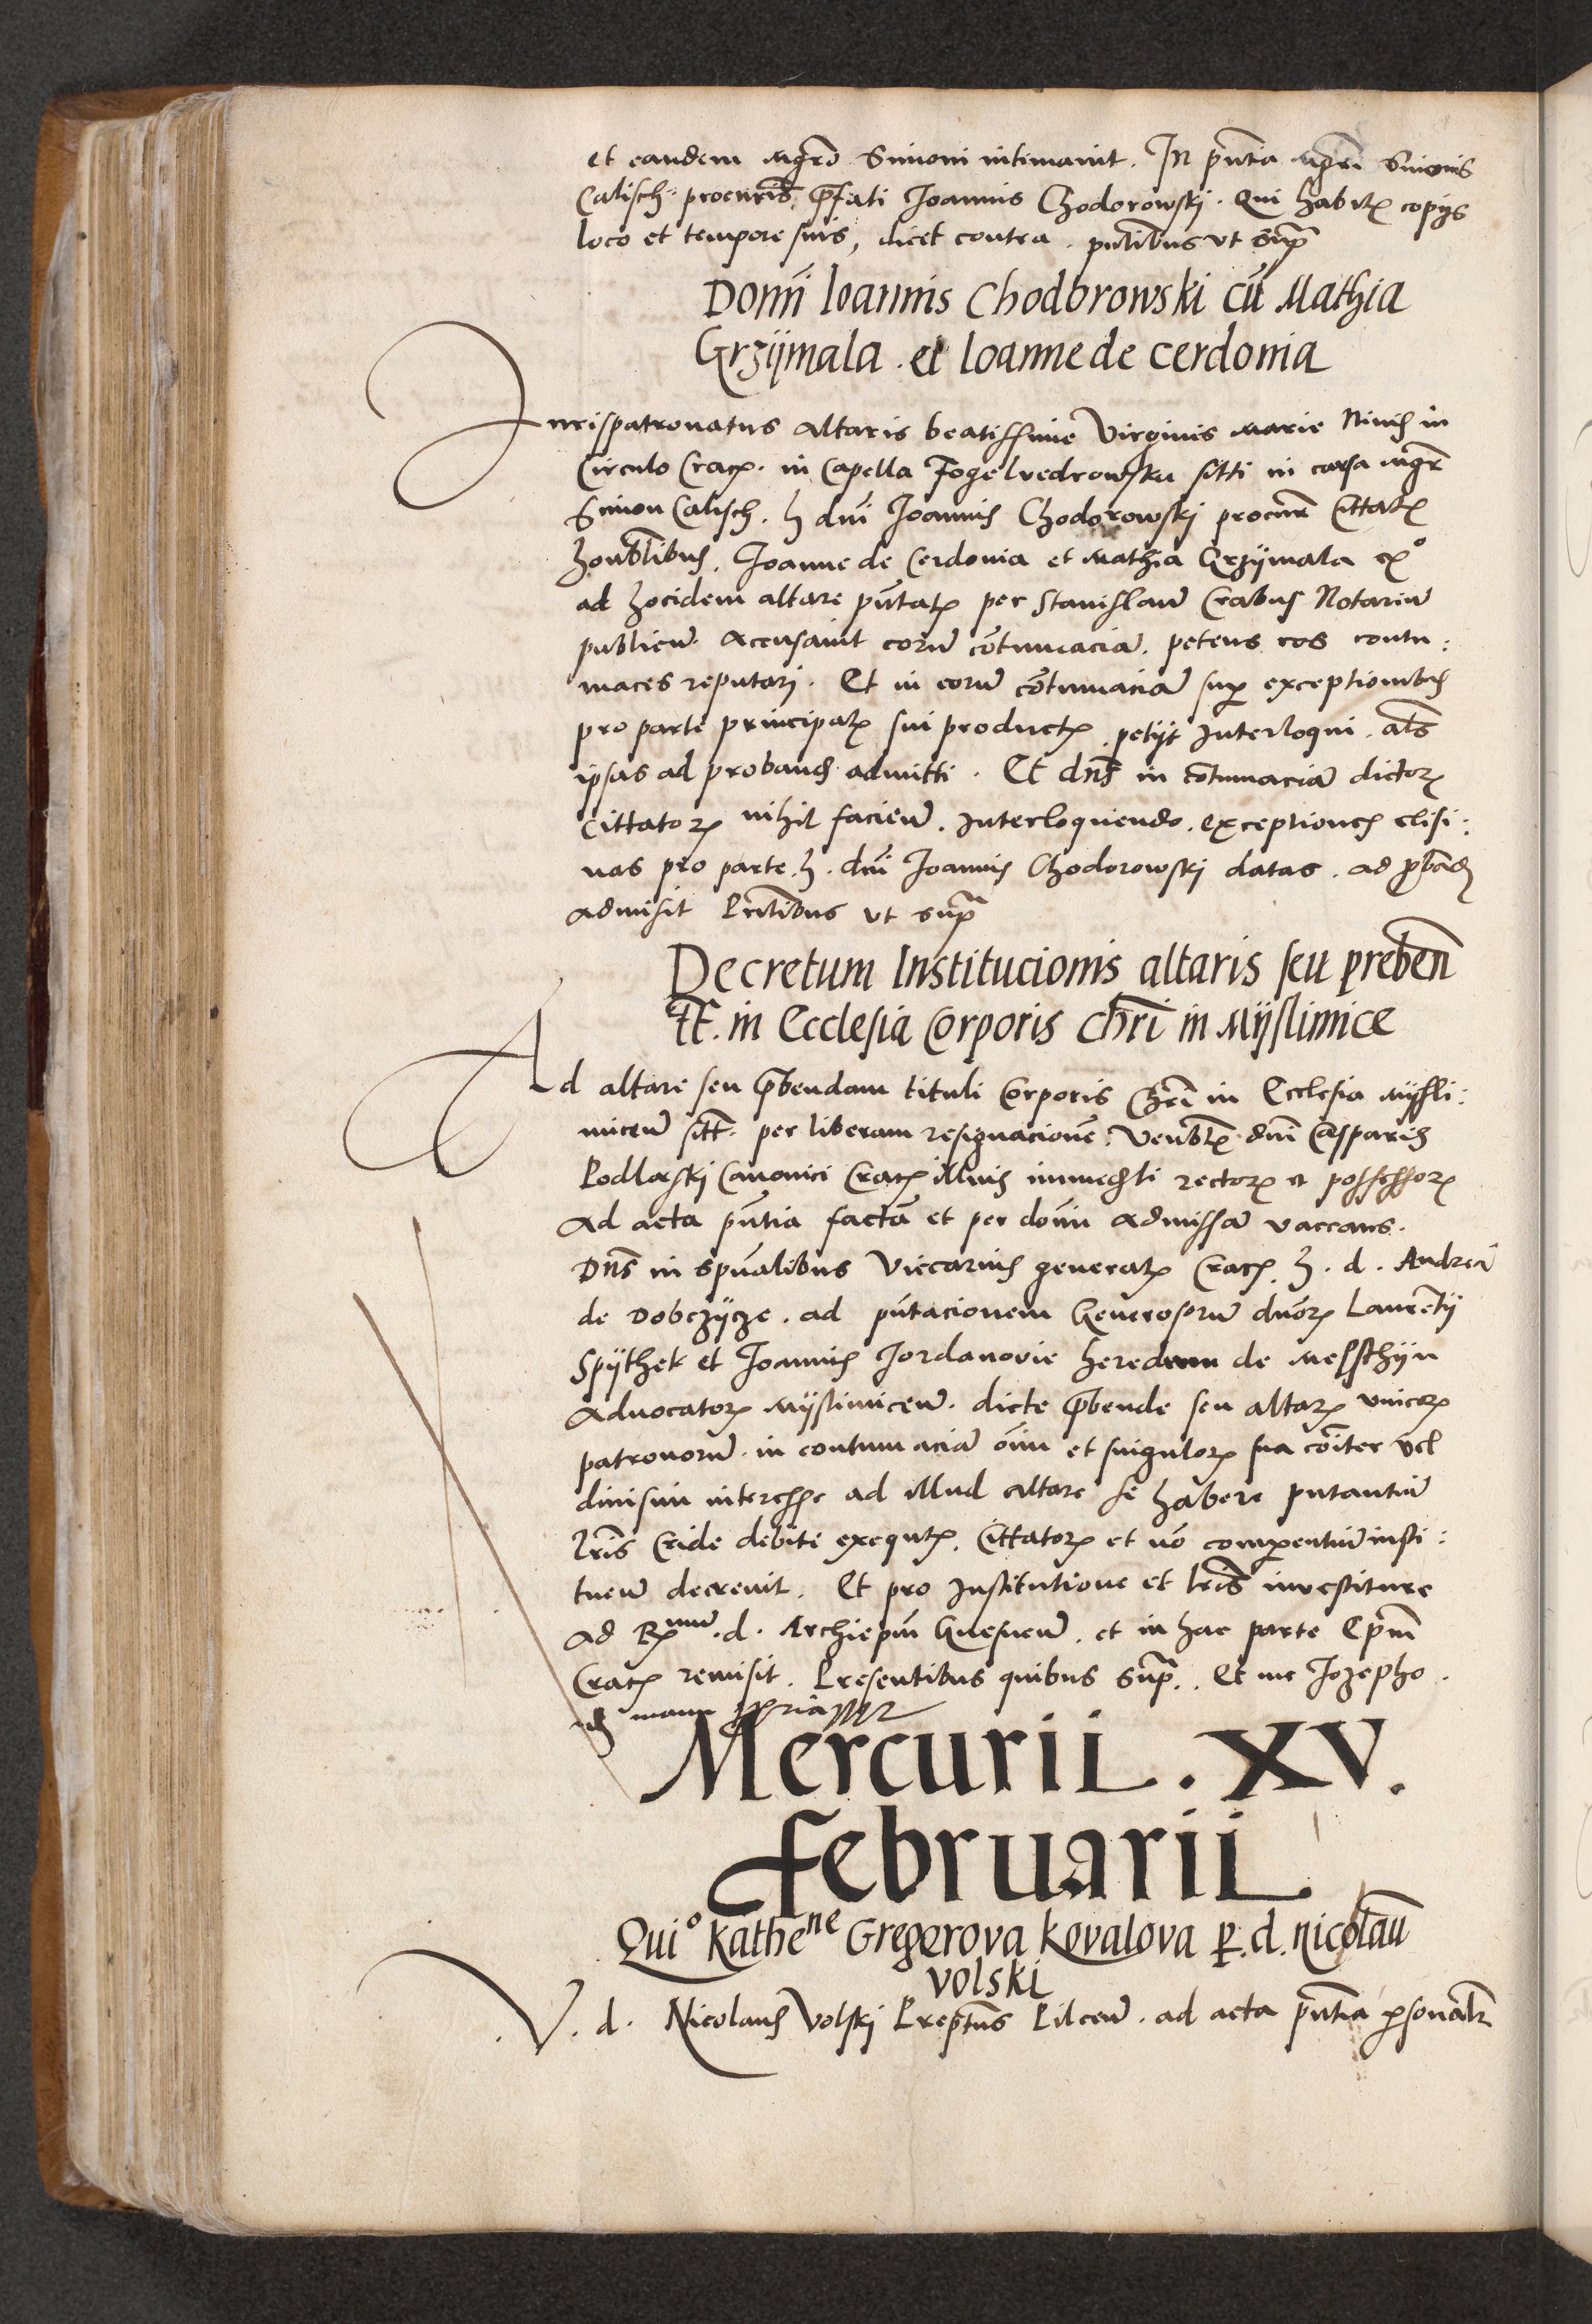 et eandem mgro Simoni intimavit. In pñtia mgri Simonis
Calisch. procuris p̃fati Joannis Chodorowskj. Qui habitꝭ copijs
loco et tempore suis, dicet contra. pñtibus ut supͣ
Domī Ioannis Chodorowski cū Mathia
Grzÿmala. et Ioanne de cerdonia
Jurispatronatus altaris beatissime Virginis Marie Nivis in
Circulo Cracꝭ. in Capella Fogelvedrowska sitti in causa mgr̄
Simon Calisch. h dnī Joannis Chodorowskj procur̄ Cittatꝭ
honⷪbilibus. Joanne de Cerdonia et Mathia Grzÿmala exº
ad hocidem altare pñtatꝭ per Stanislaū Crabus Notariū
publicū. accusavit eorū cōtumaciā. petens eos contu:
maces reputarj. Et in eorū cōtumaciā sup̱ exceptionibꝰ
pro parte principalꝭ sui productꝭ petijt Interloqui. als̄
ipsas ad proband admitti. Et dns̄ in cōtumaciā dictorꝝ
Cittatorꝝ nihil facieñ. Interloquendo. exceptiones elisi:
vas pro parte. h. dnī Joannis Chodorowskj datas. ad p̱band
admisit Pñtibus ut supͣ
Decretum Institucionis altaris seu preben̄
tt. in Ecclesia Corporis Chri in Mÿslimice
Ad altare seu p̃bendam tituli Corporis Chri in Ecclesia Mÿsli:
miceñ sitt. per liberam resignacionē. Venbilꝭ. dnī Casparis
Podlaskj Canonici Cracꝭ illius immediati rectorꝭ et possessorꝭ
ad acta pñtia factā et per domin admissā vaccans.
Dns̄ in spūalibus Viccarius generalꝭ Cracꝭ h. d. Andreā
de Dobczÿcze. ad pñtacionem Generosorū dnōrꝝ Laurentÿ
Spÿthek et Joannis Jordanovie heredum de Melschÿn
Advocatorꝝ Mÿslimiceñ. dicte p̃bende seu altarꝭ unicorꝝ
patronorū. in contumaciā oīm et singulorꝝ sua cōiter vel
divisim interesse ad illud altare se habere putantiū
lrīs Cride debite exequtꝭ. Cittatorꝝ et nō comparentiū insti:
tueñ decrevit. Et pro Institutione et lrīs investiture
ad Rꝭmum. d. Archiepm̄ Gnesneñ. et in hac parte Ep̄m
Cracꝭ remisit. Presentibus quibus supͣ. Et me Jozepho.
manu pp̱ria
Mercurii. XV.
februarii.
Quiº kathene Gregerova kovalova p̱. d. nicolaū
volski
V. d. Nicolaus Volskj Prepts̄ Pilceñ. ad acta pñtia p̱sonalr̄